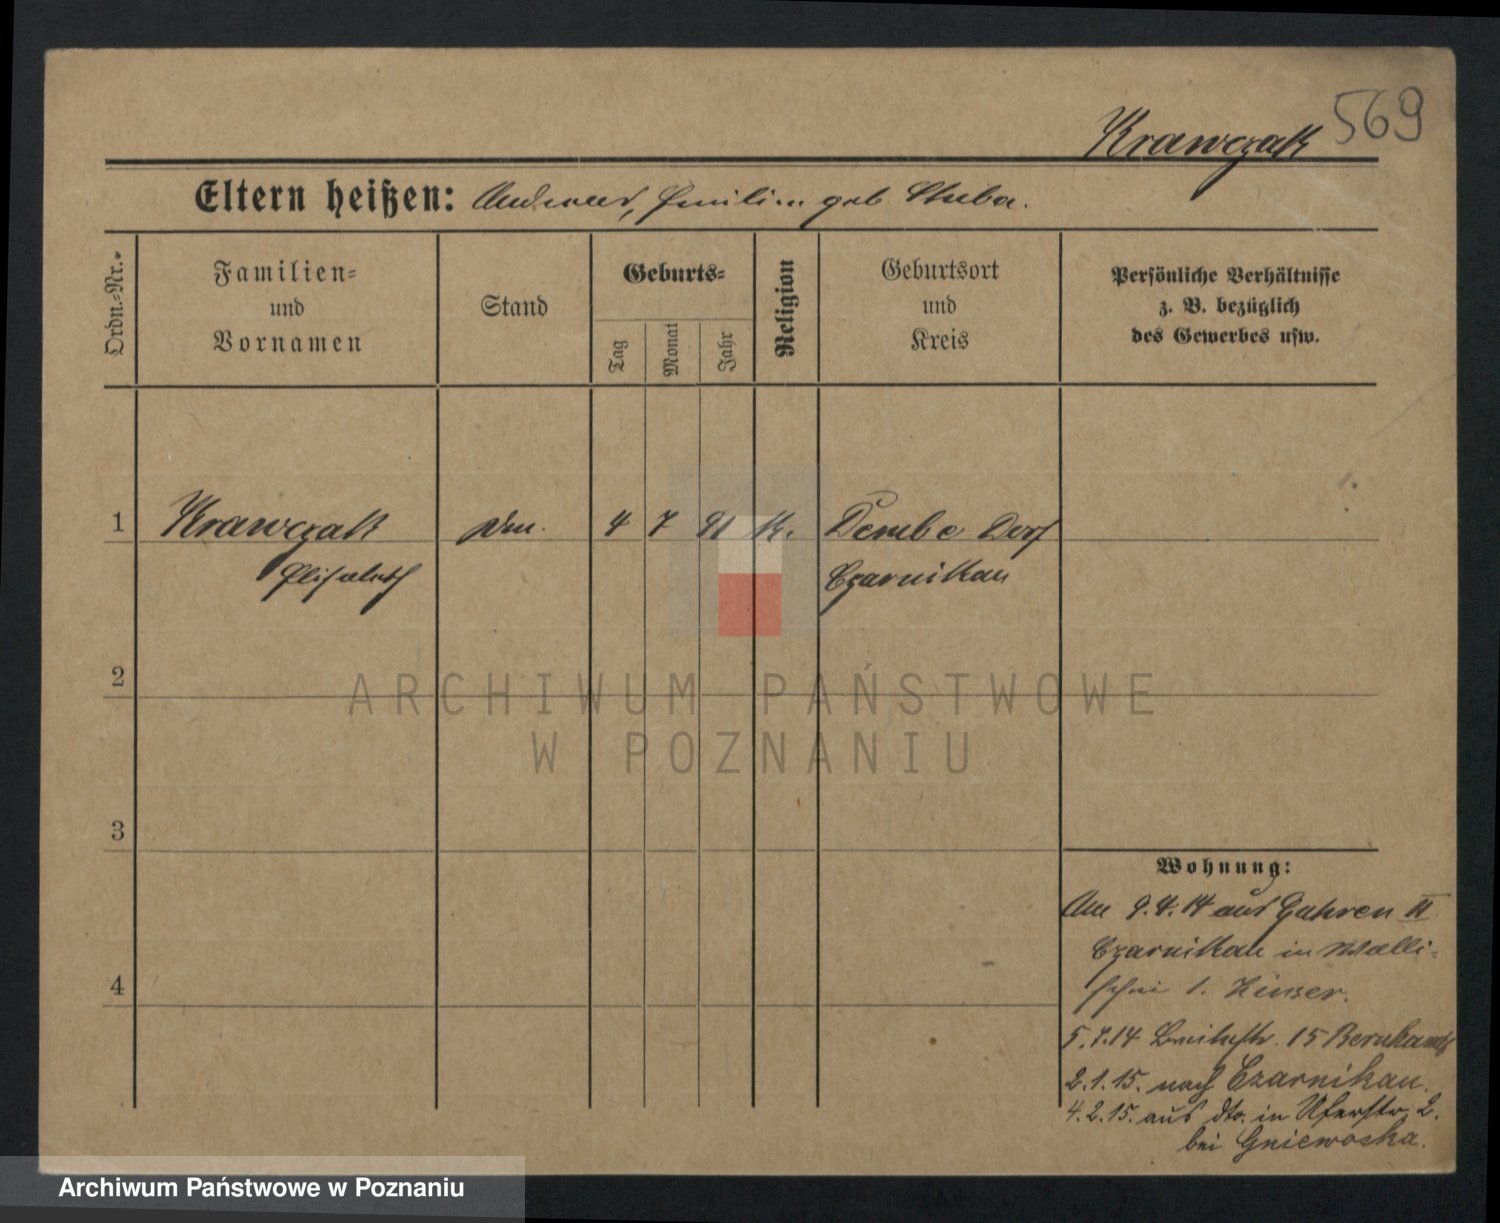 569
Krawczak
Eltern heißen: Andreas, Emilie geb Skuba.
Ordn.=Nr.
Familien=
und
Vornamen
Stand
Geburts=
Tag
Monat
Jahr
Religion
Geburtsort
und
Kreis
Persönliche Verhältnisse
z. B. bezüglich
des Gewerbes usw.
1 Krawczak 4 7 91 K. Dembe Dorf
Elisabeth Czarnikau
2
3
4
Wohnung:
Am 9.4.14 aus Gahren II
Czarnikau in Walli-
schei 1.
5.7.14 Breitestr. 15
2.1.15. nach Czarnikau.
4.2.15. aus dto. in Uferstr. 2.
bei Gniewoska.
ARCHIWUM PAŃSTWOWE
W POZNANIU
Archiwum Państwowe w Poznaniu